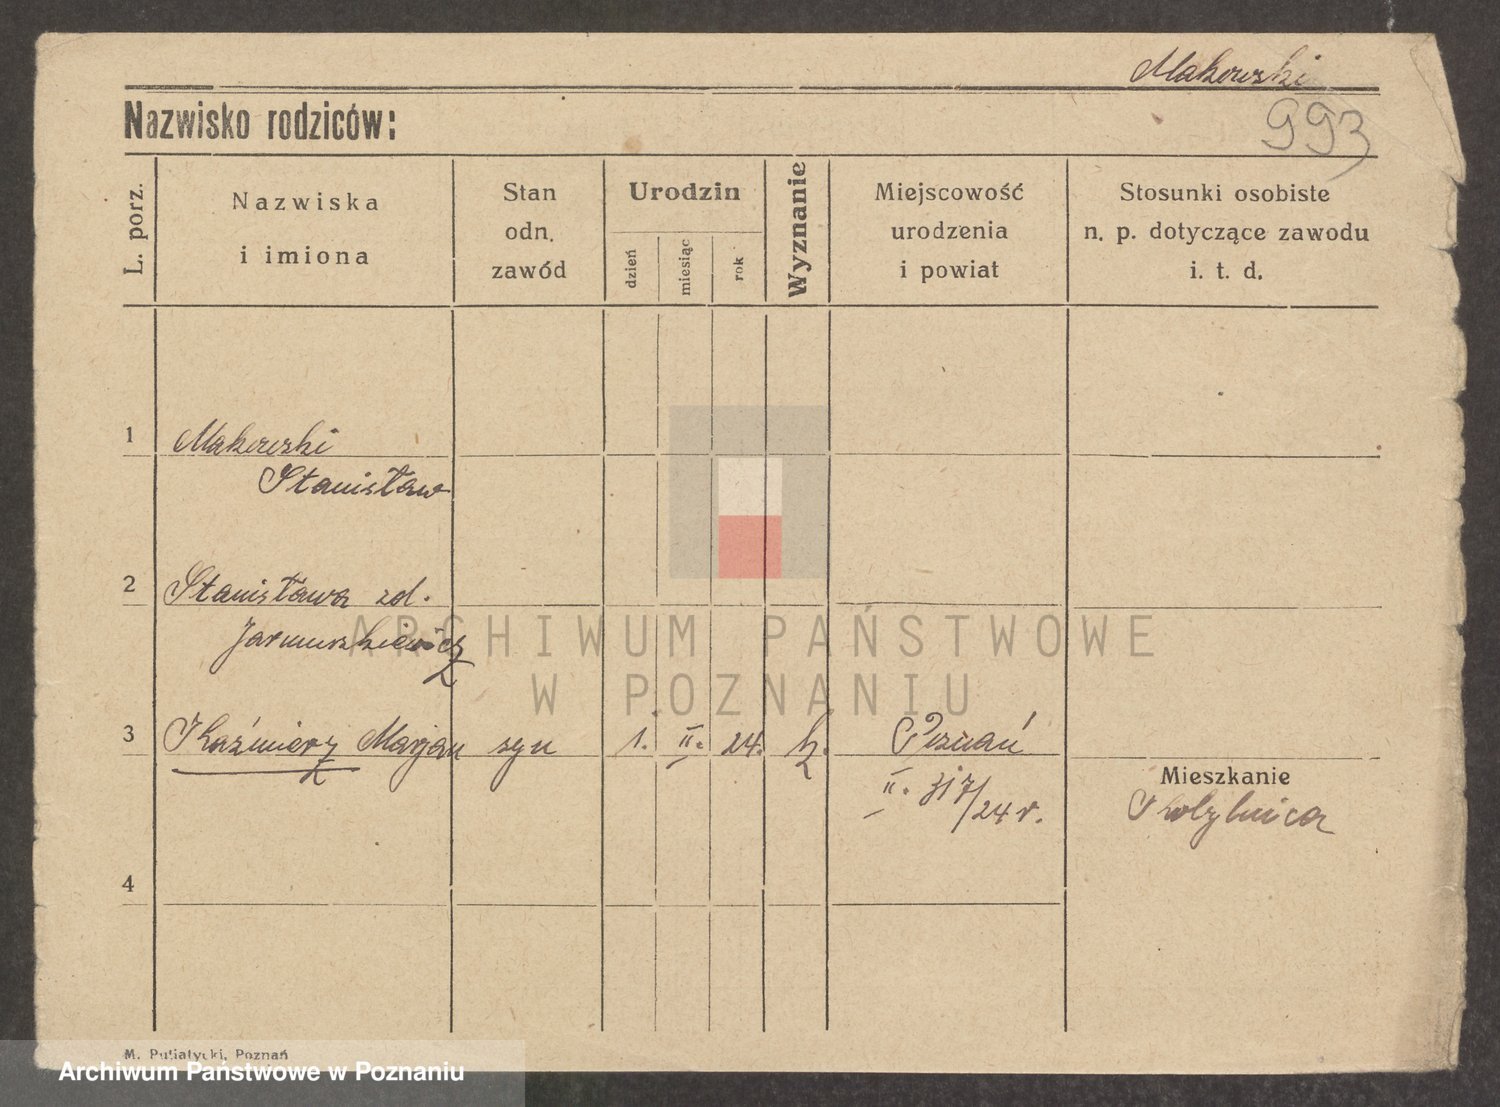 Makowski
993
Nazwisko rodziców:
L. porz.
Nazwiska
i imiona
Stan
odn.
zawód
Urodzin
dzień
miesiąc
rok
Wyznanie
Miejscowość
urodzenia
i powiat
Stosunki osobiste
n. p. dotyczące zawodu
i. t. d.
1 Makowski
Stanisław
2 Stanisława zd.
Jarmuszkiewicz
3 Kaźmierz Marjan syn 1. II. 24. k. Poznań
II. 317/24 r.
Mieszkanie
Kobylnica
4
ARCHIWUM PAŃSTWOWE
W POZNANIU
M. Putiatycki, Poznań
Archiwum Państwowe w Poznaniu